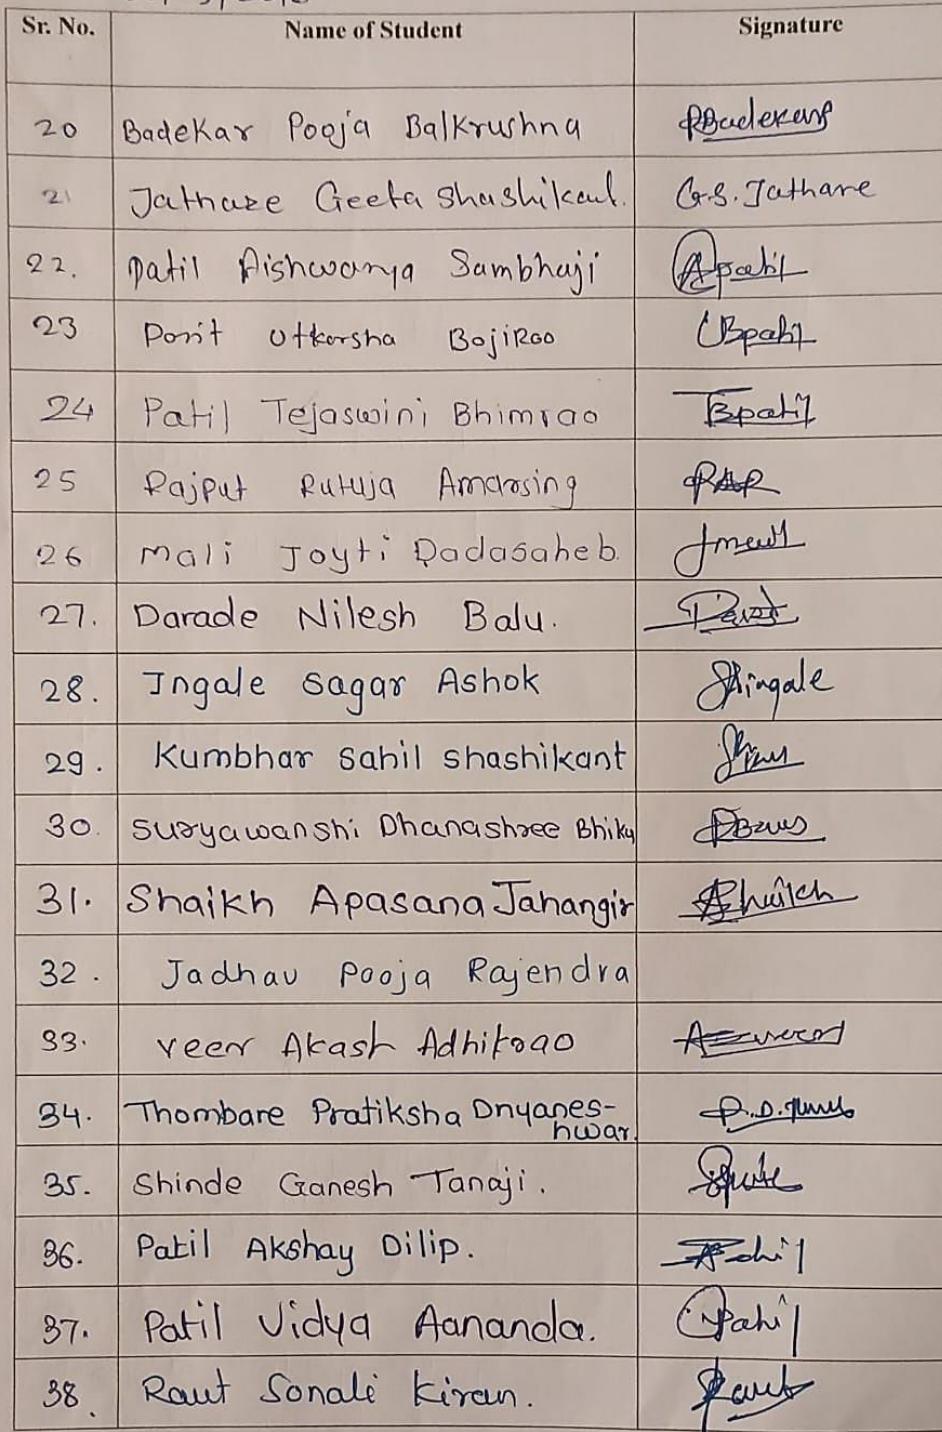 Sr. No. Name of Student Signature
20 Badekar Pooja Balkrushna PBadekar
21 Jathare Geeta Shashikant. G.S. Jathare
22. Patil Aishwarya Sambhaji Apatil
23 Utkarsha BajiRao UBpatil
24 Patil Tejaswini Bhimrao TBpatil
25 Rajput Rutuja Amarsing RAR
26 Mali Joyti Dadasaheb.
27. Darade Nilesh Balu.
28. Ingale Sagar Ashok SAingale
29. Kumbhar Sahil Shashikant
30. Suryawanshi Dhanashree Bhiku
31. Shaikh Apasana Jahangir AShaikh
32. Jadhav Pooja Rajendra
33. Veer Akash Adhikrao
34. Thombare Pratiksha Dnyanes-
hwar.
35. Shinde Ganesh Tanaji.
36. Patil Akshay Dilip.
37. Patil Vidya Aananda. Patil
38. Raut Sonali Kiran. Raut